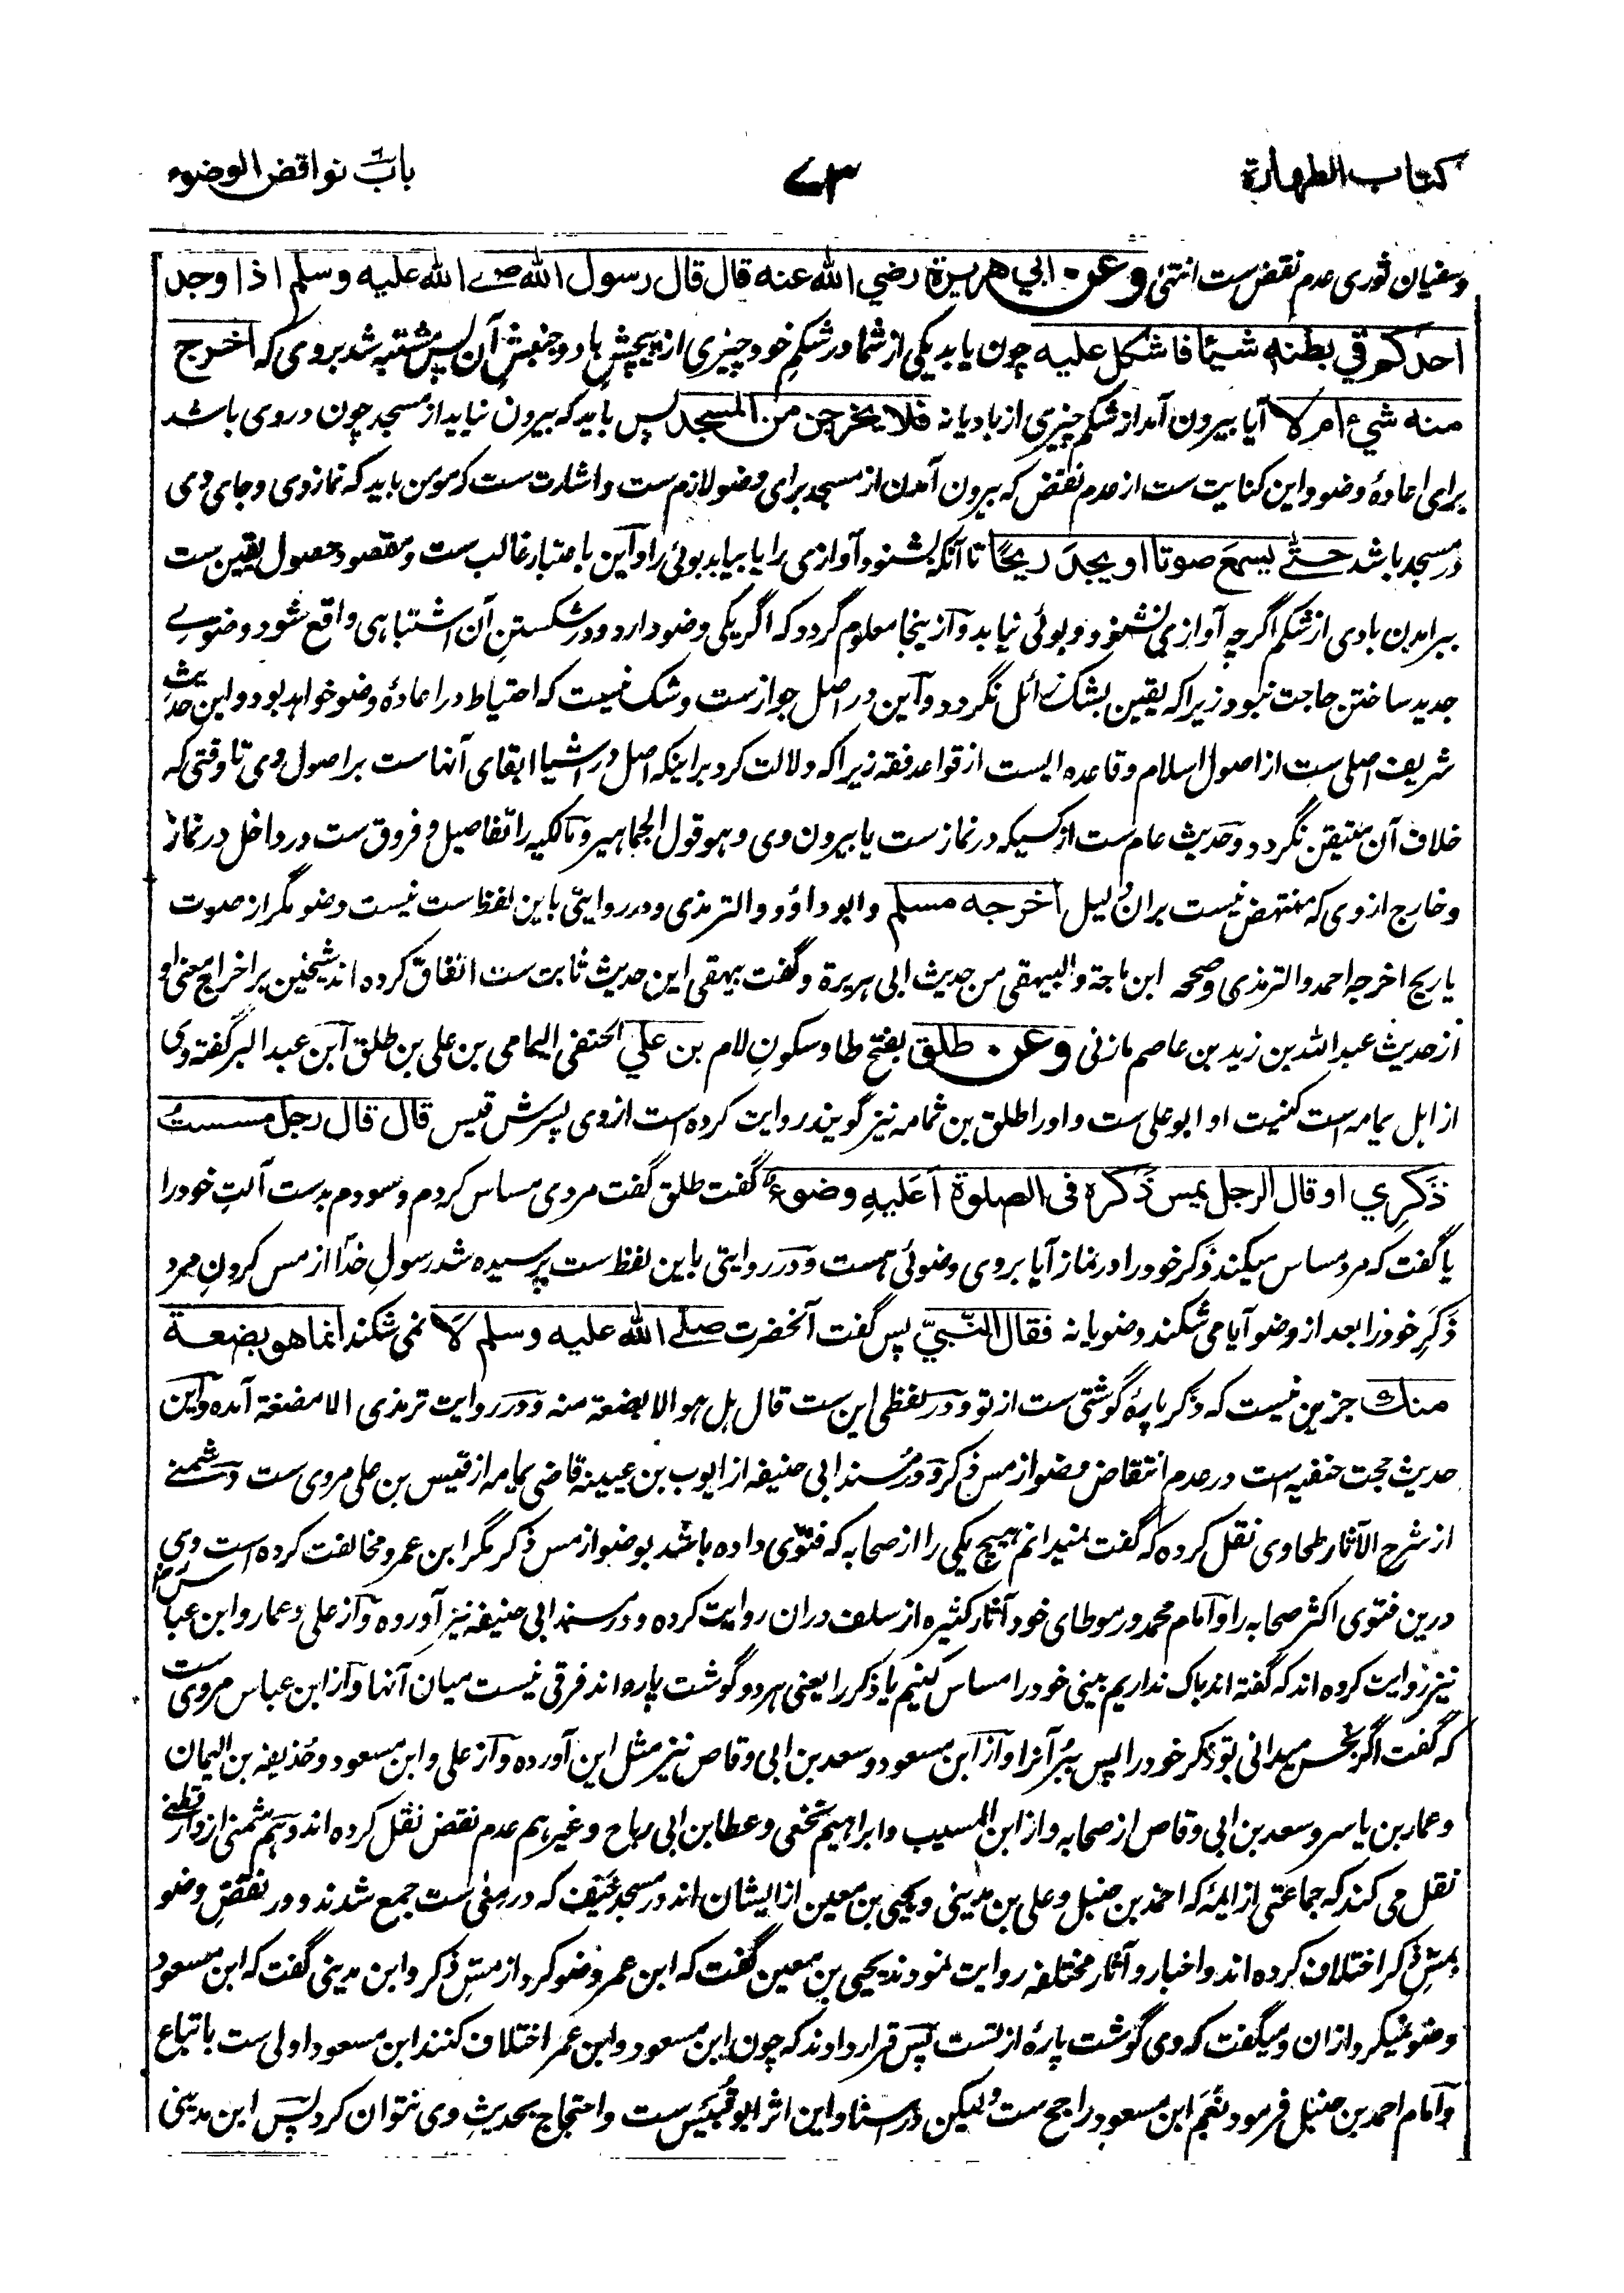 کتاب الطهارة
۷۳
باب نواقض الوضوء
وسفیان ثوری عدم نقض ست انتهیٰ وعن ابي هريرة رضي الله عنه قال قال رسول الله صلے الله عليه وسلم اذا وجد
احدكم في بطنه شيئا فاشكل عليه چون یابد یکی از شما در شکم خود چیزی از پیچش باد و جنبش آن پس مشتبه شد بروی که اخرج
منه شيء ام لا آیا بیرون آمد از شکم چیزی از باد یا نه فلا يخرجن من المسجد پس باید که بیرون نیاید از مسجد چون در وی باشد
برای اعادهٔ وضو و این کنایت ست از عدم نقض که بیرون آمدن از مسجد برای وضو لازم ست و اشارت ست که مومن باید که نماز وی و جای وی
در مسجد باشد حتے يسمع صوتا او يجد ريحا تا آنکه بشنود آوازی را یا بیابد بوئی را و این باعتبار غالب ست و مقصود حصول یقین ست
ببرامدن بادی از شکم اگرچه آوازی نشنود و بوئی نیابد و ازینجا معلوم گردد که اگر یکی وضو دارد و در شکستن آن اشتباهی واقع شود وضوے
جدید ساختن حاجت نبود زیرا که یقین بشک زائل نگردد و این در اصل جواز ست و شک نیست که احتیاط در اعادهٔ وضو خواهد بود و این حدیث
شریف اصلی ست از اصول اسلام و قاعده ایست از قواعد فقه زیرا که دلالت کرد بر اینکه اصل در اشیا ابقای آنهاست بر اصول وی تا وقتی که
خلاف آن متیقن نگردد و حدیث عام ست از کسیکه در نماز ست یا بیرون وی و هو قول الجماهیر و مالکیه را تفاصیل و فروق ست در داخل در نماز
و خارج از وی که منتهض نیست بران دلیل اخرجه مسلم و ابو داؤد و الترمذی و در روایتی باین لفظ ست نیست وضو مگر از صوت
یا ریح اخرجه احمد والترمذی وصححه ابن ماجة والبیهقی من حدیث ابی هریرة و گفت بیهقی این حدیث ثابت ست اتفاق کرده اند شیخین بر اخراج معنی او
از حدیث عبد الله بن زید بن عاصم مازنی وعن طلق بفتح طا و سکون لام بن علي الحنفی الیمامی بن علی بن طلق ابن عبد البر گفته وی
از اهل یمامه است کنیت او ابو علی ست و او را طلق بن ثمامه نیز گویند روایت کرده است از وی پسرش قیس قال قال رجل مسست
ذكري او قال الرجل يمس ذكره في الصلوة اعليه وضوء گفت طلق گفت مردی مساس کردم و سودم بدست آلت خود را
یا گفت که مرد مساس میکند ذکر خود را در نماز آیا بروی وضوئی هست و در روایتی باین لفظ ست پرسیده شد رسول خدا از مس کردن مرد
ذکر خود را بعد از وضو آیا می شکند وضو یا نه فقال النبي پس گفت آنحضرت صلے الله عليه وسلم لا نمی شکند انما هو بضعة
منك جزین نیست که ذکر پارهٔ گوشتی ست از تو و در لفظی این ست قال بل هو الا بضعة منه و در روایت ترمذی الا مضغة آمده و این
حدیث حجت حنفیه است در عدم انتقاض وضو از مس ذکر و در مسند ابی حنیفه از ایوب بن عیینه قاضی یمامه از قیس بن علی مروی ست و شمنے
از شرح الآثار طحاوی نقل کرده که گفت نمیدانم هیچ یکی را از صحابه که فتوی داده باشد بوضو از مس ذکر مگر ابن عمر و مخالفت کرده است وی
درین فتوی اکثر صحابه را و امام محمد در موطای خود آثار کثیره از سلف دران روایت کرده و در مسند ابی حنیفه نیز آورده و از علی و عمار و ابن عباس
نیز روایت کرده اند که گفته اند باک نداریم بینی خود را مساس کنیم یا ذکر را یعنی هر دو گوشت پاره اند فرقی نیست میان آنها و از ابن عباس مروی ست
که گفت اگر نجس میدانی تو ذکر خود را پس ببر آنرا و از ابن مسعود و سعد بن ابی وقاص نیز مثل این آورده و از علی و ابن مسعود و حذیفه بن الیمان
و عمار بن یاسر و سعد بن ابی وقاص از صحابه و از ابن المسیب و ابراهیم نخعی و عطا بن ابی رباح و غیرهم عدم نقض نقل کرده اند و هم شمنی از دارقطنے
نقل می کند که جماعتی از ائمه که احمد بن حنبل و علی بن مدینی و یحیی بن معین از ایشان اند در مسجد خیف که در منی ست جمع شدند و در نقض وضو
بمس ذکر اختلاف کرده اند و اخبار و آثار مختلفه روایت نمودند یحیی بن معین گفت که ابن عمر وضو کرد از مس ذکر و ابن مدینی گفت که ابن مسعود
وضو نمیکرد ازان و میگفت که وی گوشت پارهٔ از تست پس قرار دادند که چون ابن مسعود و ابن عمر اختلاف کنند ابن مسعود اولی ست باتباع
و امام احمد بن حنبل فرمود نعم ابن مسعود راجح ست ولیکن در اسناد این اثر ابو قیس ست و احتجاج بحدیث وی نتوان کرد پس ابن مدینی